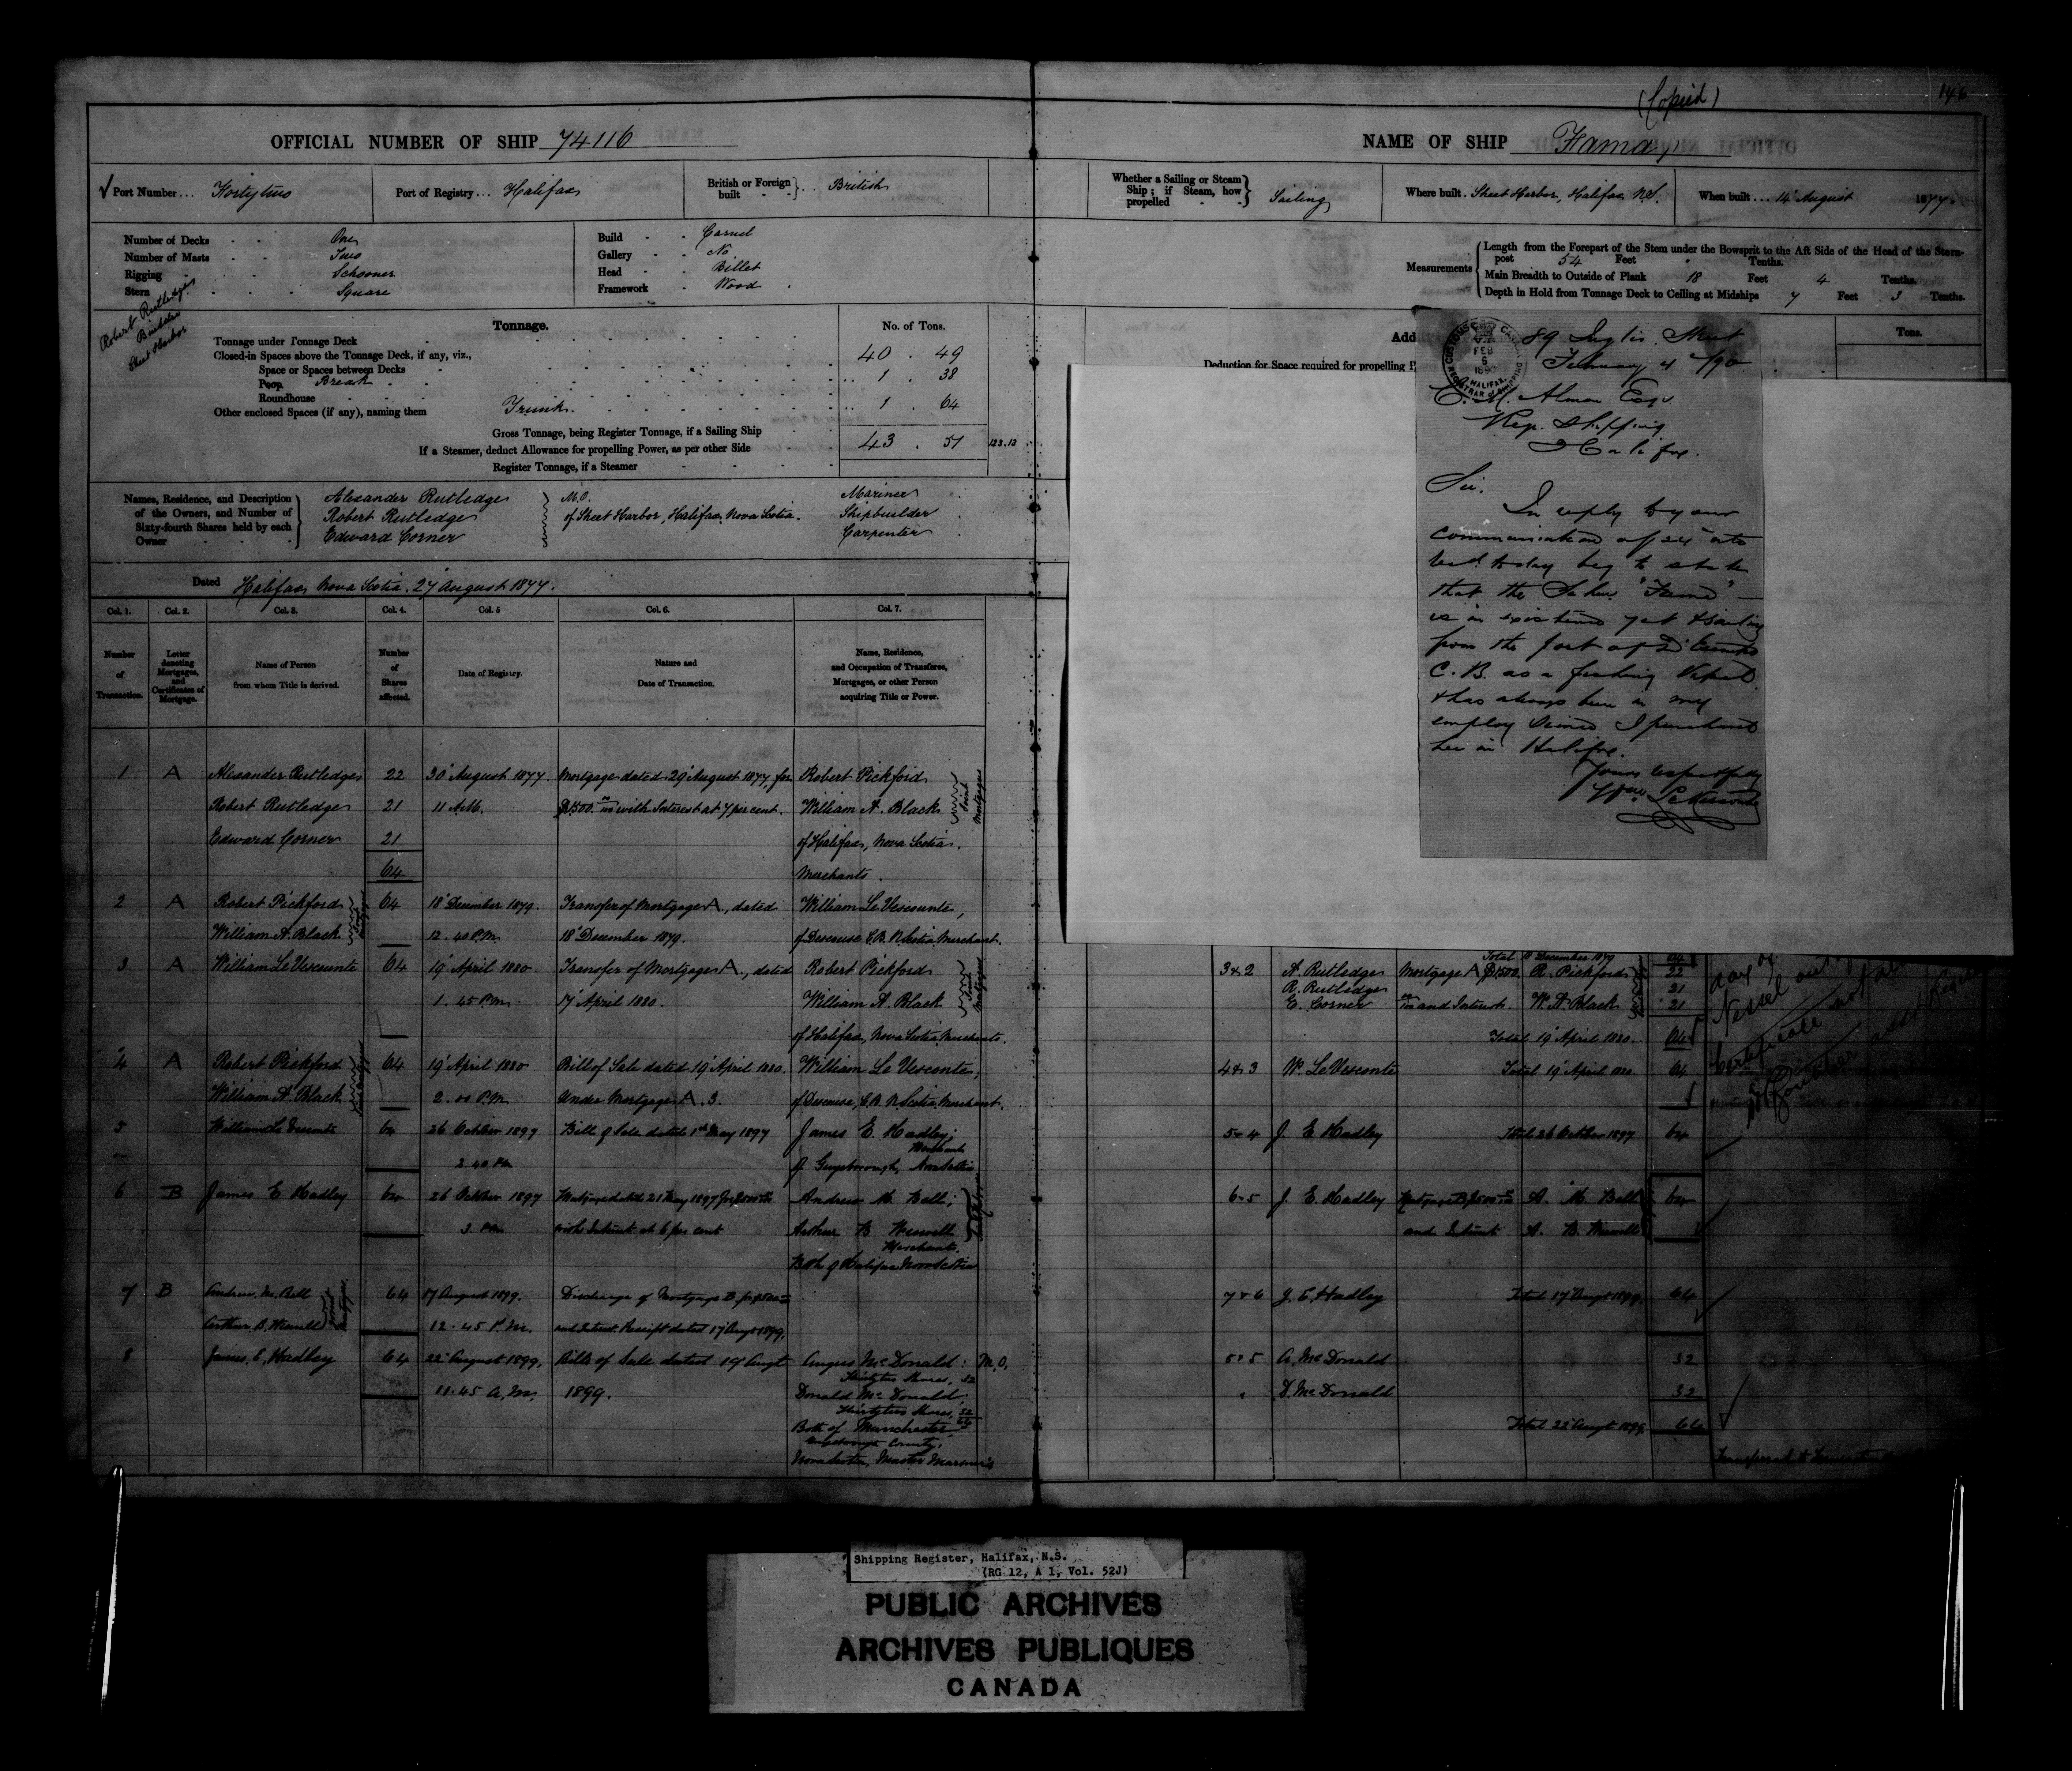 (Copied)
146
OFFICIAL NUMBER OF SHIP 74116
NAME OF SHIP Fama
Port Number... Forty two
Port of Registry... Halifax
British or Foreign built } British
Whether a Sailing or Steam Ship; if Steam, how propelled } Sailing
Where built. Sheet Harbor, Halifax N.S.
When built... 14 August 1877.
Number of Decks One
Number of Masts Two
Rigging Schooner
Stern Square
Build Carvel
Gallery No
Head Billet
Framework Wood
Measurements
Length from the Forepart of the Stem under the Bowsprit to the Aft Side of the Head of the Stern-
post 54 Feet Tenths.
Main Breadth to Outside of Plank 18 Feet 4 Tenths.
Depth in Hold from Tonnage Deck to Ceiling at Midships 7 Feet 3 Tenths.
Robert Rutledge
Builder
Sheet Harbor
Tonnage.
No. of Tons.
Tonnage under Tonnage Deck 40 . 49
Closed-in Spaces above the Tonnage Deck, if any, viz.,
Space or Spaces between Decks
Poop Break 1 . 38
Roundhouse
Other enclosed Spaces (if any), naming them Trunk 1 . 64
Gross Tonnage, being Register Tonnage, if a Sailing Ship 43 . 51
123.13
If a Steamer, deduct Allowance for propelling Power, as per other Side
Register Tonnage, if a Steamer
Tons.
Deduction for Space required for propelling
Names, Residence, and Description
of the Owners, and Number of
Sixty-fourth Shares held by each
Owner
Alexander Rutledge M.O. Mariner
Robert Rutledge of Sheet Harbor, Halifax, Nova Scotia. Shipbuilder
Edward Corner Carpenter
Dated Halifax Nova Scotia. 27 August 1877.
Col. 1. Col. 2. Col. 3. Col. 4. Col. 5 Col. 6. Col. 7.
Number of Transaction.
Letter denoting Mortgages, and Certificates of Mortgage.
Name of Person from whom Title is derived.
Number of Shares affected.
Date of Registry.
Nature and Date of Transaction.
Name, Residence, and Occupation of Transferee, Mortgagee, or other Person acquiring Title or Power.
1 A Alexander Rutledge 22 30 August 1877. Mortgage dated 29 August 1877, for Robert Pickford
Robert Rutledge 21 11 A.M. $1500 with Interest at 7 per cent. William A. Black
Joint Mortgagees
Edward Corner 21 of Halifax, Nova Scotia.
64 Merchants.
2 A Robert Pickford 64 18 December 1879. Transfer of Mortgage A, dated William Le Vesconte,
William A. Black 12.40 P.M. 18 December 1879. of Descouse C.B. N. Scotia. Merchant.
3 A William Le Vesconte 64 19 April 1880. Transfer of Mortgage A, dated Robert Pickford
1.45 P.M. 17 April 1880. William A. Black
Joint Mortgagees
of Halifax, Nova Scotia. Merchants.
4 A Robert Pickford 64 19 April 1880 Bill of Sale dated 19 April 1880. William Le Vesconte,
William A. Black 2.00 P.M. Under Mortgage A. 3. of Descouse, C.B. N. Scotia. Merchant.
5 William Le Vesconte 64 26 October 1897 Bill of Sale dated 1st May 1897 James E. Hadley;
Merchant
2.40 PM of Guysborough, Nova Scotia
6 B James E Hadley 64 26 October 1897 Mortgage dated 21 May 1897 for $500 Andrew M. Bell;
3. PM with Interest at 6 per cent Arthur B Wiswell
Merchants.
Both of Halifax Nova Scotia
7 B Andrew M. Bell 64 17 August 1899. Discharge of Mortgage B. for $500
Arthur B. Wiswell 12.45 P.M. and Interest. Receipt dated 17 Augt 1899.
8 James E. Hadley 64 22 August 1899. Bill of Sale dated 19 Augt Angus McDonald: M.O.
Thirtytwo Shares, 32
11.45 A.M. 1899. Donald McDonald
Thirtytwo Shares, 32
64
Both of Manchester
Guysborough County,
Nova Scotia, Master Mariners
CUSTOMS CANADA
FEB
5
1890
HALIFAX.
REGISTRAR of SHIPPING
89 Inglis Street
February 4/90
C. M. Almon Esqr
Reg. Shipping
Halifax.
Sir.
In reply to your
communication of 24 ulto
recd. today beg to state
that the Schr. "Fama" —
is in existence yet & sailing
from the port of D'Escousse
C.B. as a fishing Vessel
& has always been in my
employ since I purchased
her in Halifax.
Yours respectfully
Wm. LeVesconte
Total 18 December 1879 64
3 & 2 A. Rutledge Mortgage A $1500. R. Pickford 22
R. Rutledge 21
E. Corner and Interest. W. A. Black 21
Total 19 April 1880. 64
4 & 3 W. Le Vesconte Total 19 April 1880. 64
5 & 4 J. E Hadley Total 26 October 1897 64
6 & 5 J. E. Hadley Mortgage B $500 A. M. Bell 64
and Interest A. B. Wiswell
7 & 6 J. E. Hadley Total 17 Augt 1899. 64
8 & 5 A. McDonald 32
" D. McDonald 32
Total 22 Augt 1899. 64
Vessel
Certificate not
Shipping Register, Halifax, N.S.
(RG 12, A 1, Vol. 52J)
PUBLIC ARCHIVES
ARCHIVES PUBLIQUES
CANADA